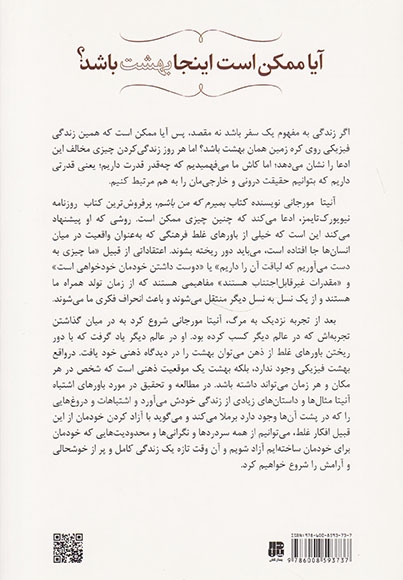 آیا ممکن است اینجا بهشت باشد؟
اگر زندگی به مفهوم یک سفر باشد نه مقصد، پس آیا ممکن است که همین زندگی
فیزیکی روی کره زمین همان بهشت باشد؟ اما هر روز زندگی‌کردن چیزی مخالف این
ادعا را نشان می‌دهد؛ اما کاش ما می‌فهمیدیم که چه‌قدر قدرت داریم؛ یعنی قدرتی
داریم که بتوانیم حقیقت درونی و خارجی‌مان را به هم مرتبط کنیم.
آنیتا مورجانی نویسنده کتاب بمیرم که من باشم، پرفروش‌ترین کتاب روزنامه
نیویورک‌تایمز، ادعا می‌کند که چنین چیزی ممکن است. روشی که او پیشنهاد
می‌کند این است که خیلی از باورهای غلط فرهنگی که به‌عنوان واقعیت در میان
انسان‌ها جا افتاده است، می‌باید دور ریخته بشوند. اعتقاداتی از قبیل «ما چیزی به
دست می‌آوریم که لیاقت آن را داریم» یا «دوست داشتن خودمان خودخواهی است»
و «مقدرات غیرقابل‌اجتناب هستند» مفاهیمی هستند که از زمان تولد همراه ما
هستند و از یک نسل به نسل دیگر منتقل می‌شوند و باعث انحراف فکری ما می‌شوند.
بعد از تجربه نزدیک به مرگ، آنیتا مورجانی شروع کرد به در میان گذاشتن
تجربه‌اش که در عالم دیگر کسب کرده بود. او در عالم دیگر یاد گرفت که با دور
ریختن باورهای غلط از ذهن می‌توان بهشت را در دیدگاه ذهنی خود یافت. درواقع
بهشت فیزیکی وجود ندارد، بلکه بهشت یک موقعیت ذهنی است که شخص در هر
مکان و هر زمان می‌تواند داشته باشد. در مطالعه و تحقیق در مورد باورهای اشتباه
آنیتا مثال‌ها و داستان‌های زیادی از زندگی خودش می‌آورد و اشتباهات و دروغ‌هایی
را که در پشت آن‌ها وجود دارد برملا می‌کند و می‌گوید با آزاد کردن خودمان از این
قبیل افکار غلط، می‌توانیم از همه سردردها و نگرانی‌ها و محدودیت‌هایی که خودمان
برای خودمان ساخته‌ایم آزاد شویم و آن وقت تازه یک زندگی کامل و پر از خوشحالی
و آرامش را شروع خواهیم کرد.
ISBN: 978-600-8593-73-7
9786008593737